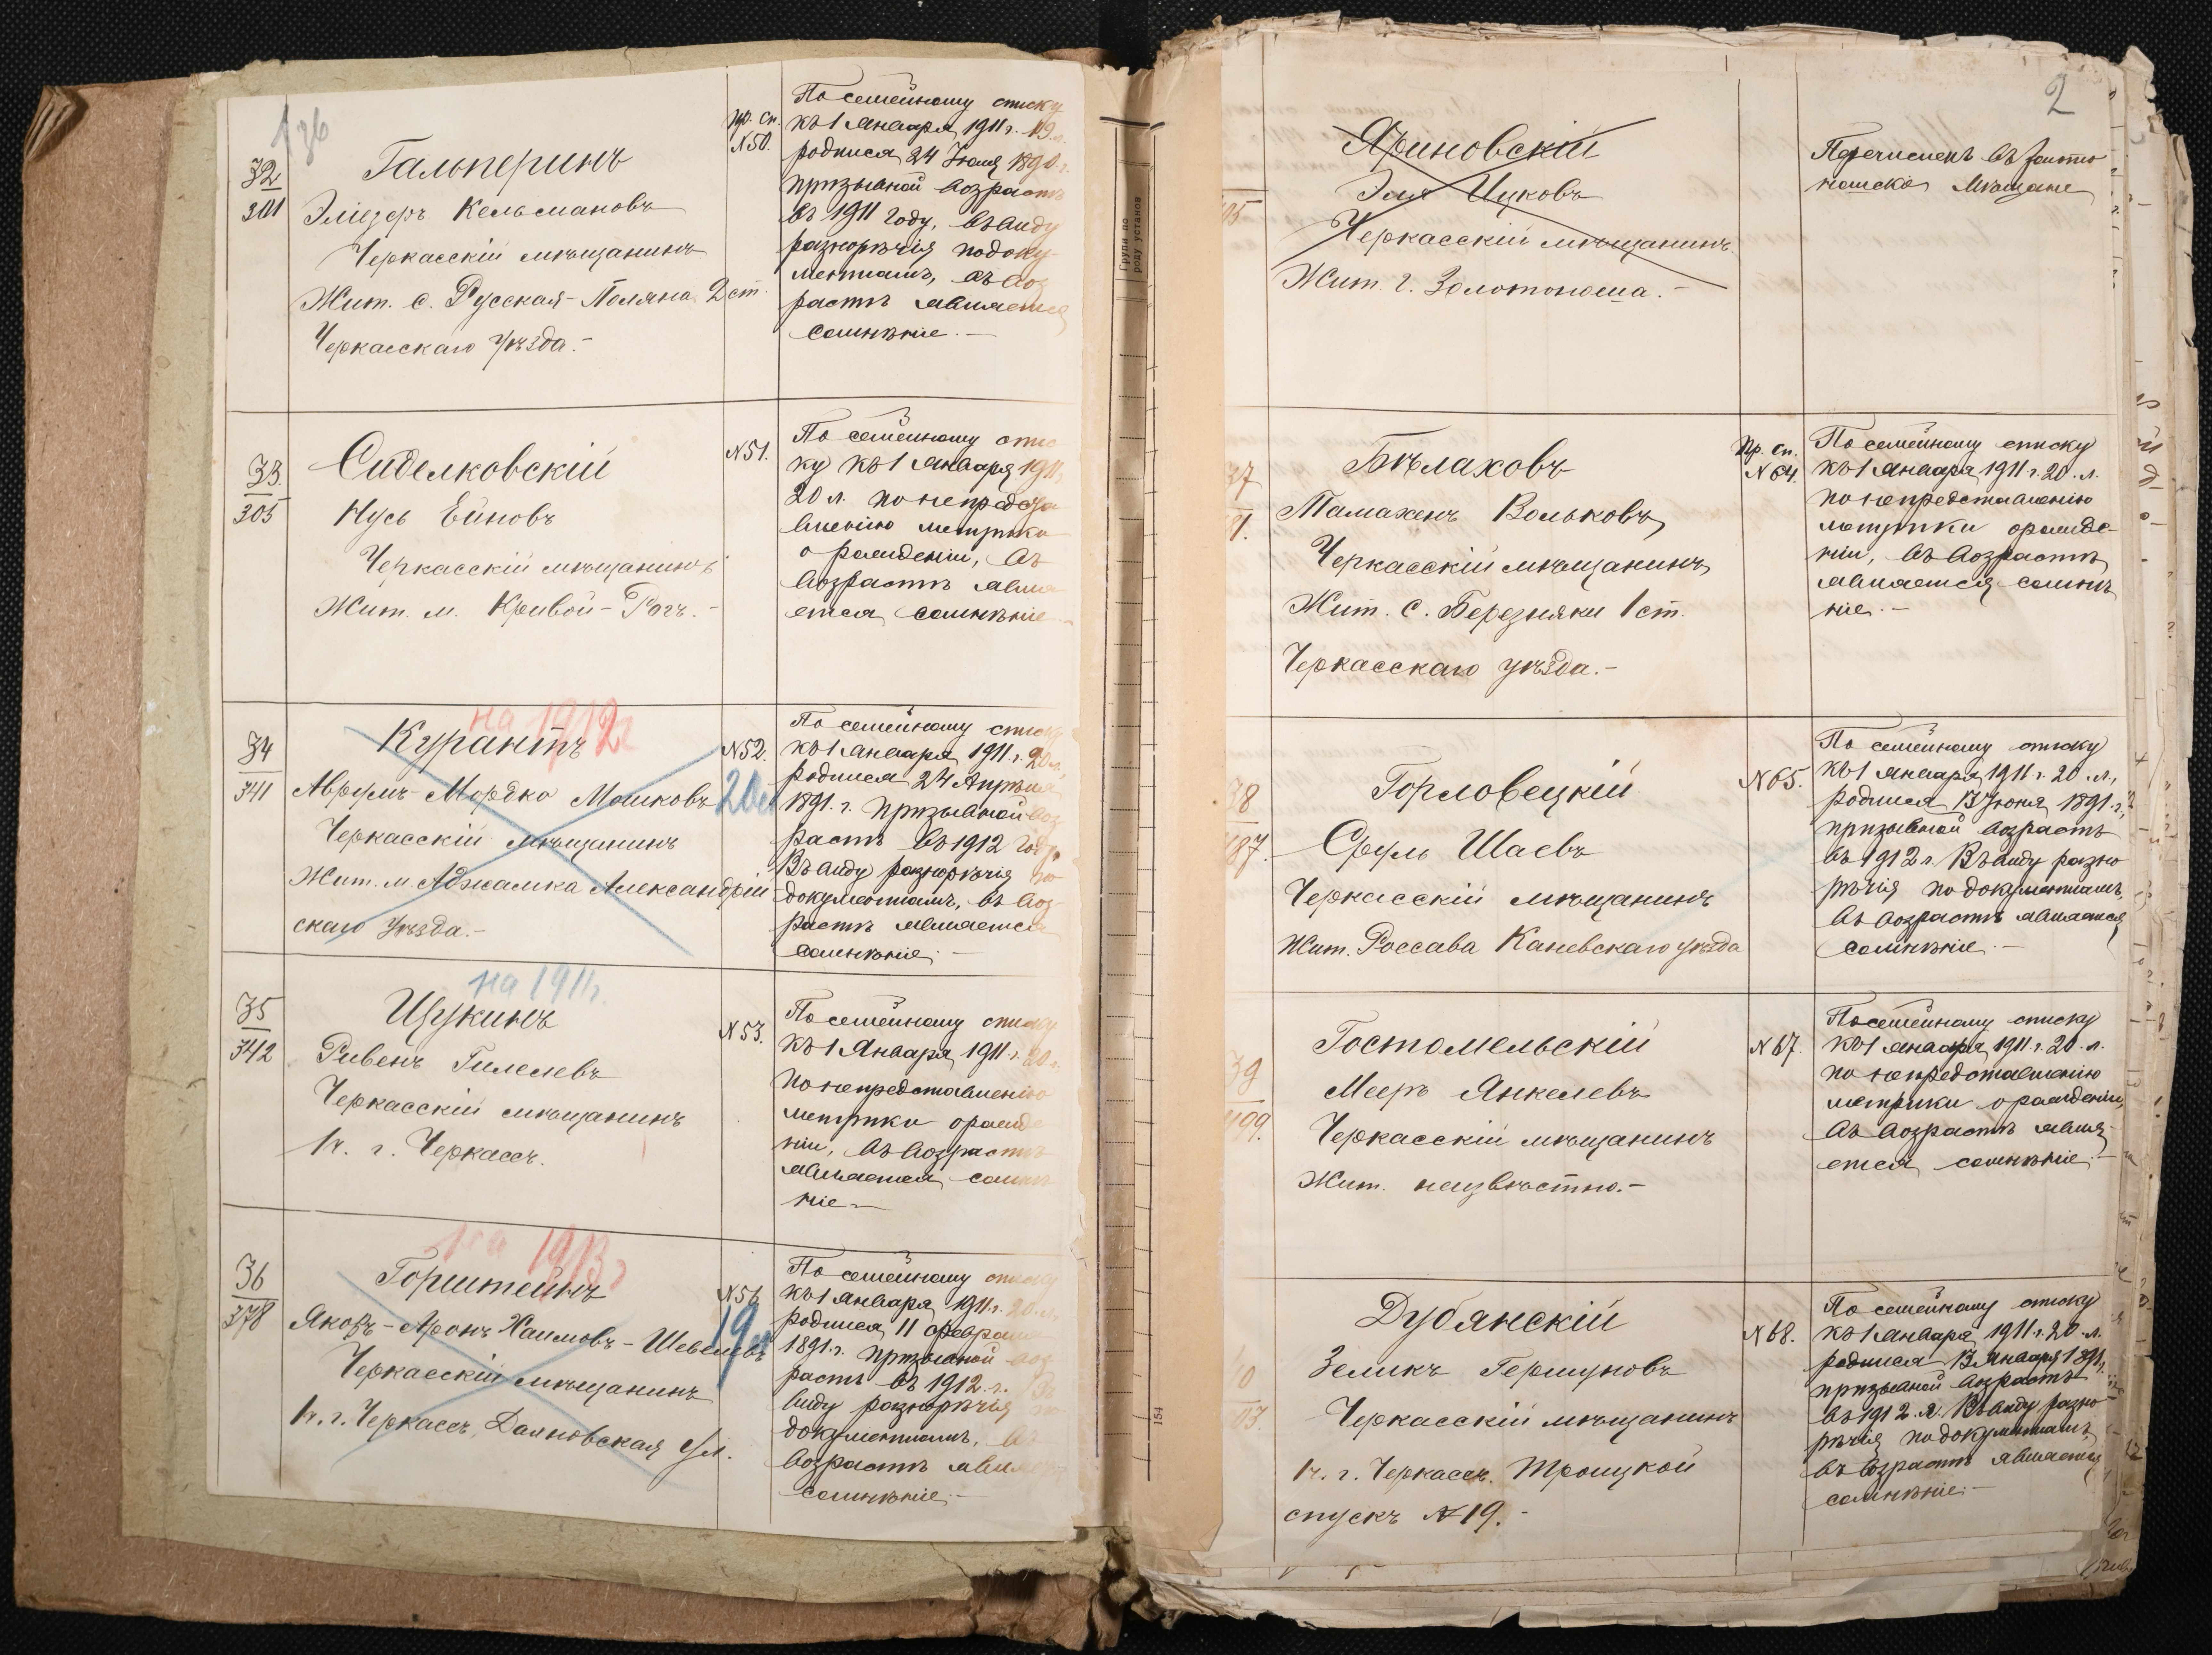 136
32
301
Гальперинъ
Эліезеръ Кельмановъ
Черкасскій мѣщанинъ
Жит. с. Русская-Поляна 2 ст.
Черкасскаго уѣзда.-
Пр. сп.
№50.
По семейному списку
къ 1 Января 1911 г. 19 л.
родился 24 Іюля 1890 г.
призывной возрастъ
въ 1911 году, въ виду
разнорѣчія по доку-
ментамъ, въ воз
растѣ является
сомнѣніе.-
33.
305
Сиделковскій
Нусь Ейновъ
Черкасскій мѣщанинъ
Жит. м. Кривой-Рогъ.-
№51.
По семейному спис
ку къ 1 Января 1911
20 л. по непредста
вленію метрики
о рожденіи, въ
возрастѣ явля
ется сомнѣніе.-
34
341
на 1912 г
Курантъ
Аврумъ-Мордко Мошковъ
Черкасскій мѣщанинъ
Жит. м. Аджамка Александрій
скаго уѣзда.-
№52.
20 л
По семейному списку
къ 1 Января 1911 г. 20 л.
родился 24 Апрѣля
1891 г. призывной воз
растъ въ 1912 году
Въ виду разнорѣчія по
документамъ, въ воз-
растѣ является
сомнѣніе.-
35
342
на 1911 г.
Щукинъ
Ривенъ Гилелевъ
Черкасскій мѣщанинъ
Іч. г. Черкассъ.
№53.
По семейному списку
къ 1 Января 1911 г. 20 л.
по непредставленію
метрики о рожде
ніи, въ возрастѣ
является сомнѣ
ніе-
36
378
на 1913 г
Горштейнъ
Яковъ-Аронъ Хаимовъ-Шевелевъ
Черкасскій мѣщанинъ
Іч. г. Черкассъ, Даяновская ул.
№56
19 л
По семейному списку
къ 1 Января 1911 г. 20 л.
родился 11 февраля
1891 г. призывной воз
растъ въ 1912 г. Въ
виду разнорѣчія по
документамъ, въ
возрастѣ является
сомнѣніе.-
Групп по
роду установ
154
2
05
Яриновскій
Эля Ицковъ
Черкасскій мѣщанинъ
Жит. г. Золотоноша.-
Перечисленъ въ Золото
ношскіе мѣщане
37
Бѣлаховъ
Тамахенъ Вольковъ
Черкасскій мѣщанинъ
Жит. с. Березняки 1 ст.
Черкасскаго уѣзда.-
Пр. сп.
№64.
По семейному списку
къ 1 Января 1911 г. 20. л.
по непредставленію
метрики о рожде-
ніи, въ возрастѣ
является сомнѣ
ніе.-
38
87.
Горловецкій
Сруль Шаевъ
Черкасскій мѣщанинъ
Жит. Россава Каневскаго уѣзда
№65.
По семейному списку
къ 1 Января 1911 г. 20. л.,
родился 13 Іюня 1891 г.,
призывной возрастъ
въ 1912 г. Въ виду разно
рѣчія по документамъ,
въ возрастѣ является
сомнѣніе.-
39
499.
Гостомельскій
Мееръ Янкелевъ
Черкасскій мѣщанинъ
Жит. неизвѣстно.-
№67.
По семейному списку
къ 1 Января 1911 г. 20. л.
по непредставленію
метрики о рожденіи,
въ возрастѣ явля-
ется сомнѣніе.-
40
03.
Дубянскій
Зеликъ Гершуновъ
Черкасскій мѣщанинъ
Іч. г. Черкассъ. Троицкой
спускъ №19.-
№68.
По семейному списку
къ 1 Января 1911 г. 20. л.
родился 13 Января 1891 г.
призывной возрастъ
въ 1912. г. Въ виду разно
рѣчія по документамъ,
въ возрастѣ является
сомнѣніе.-